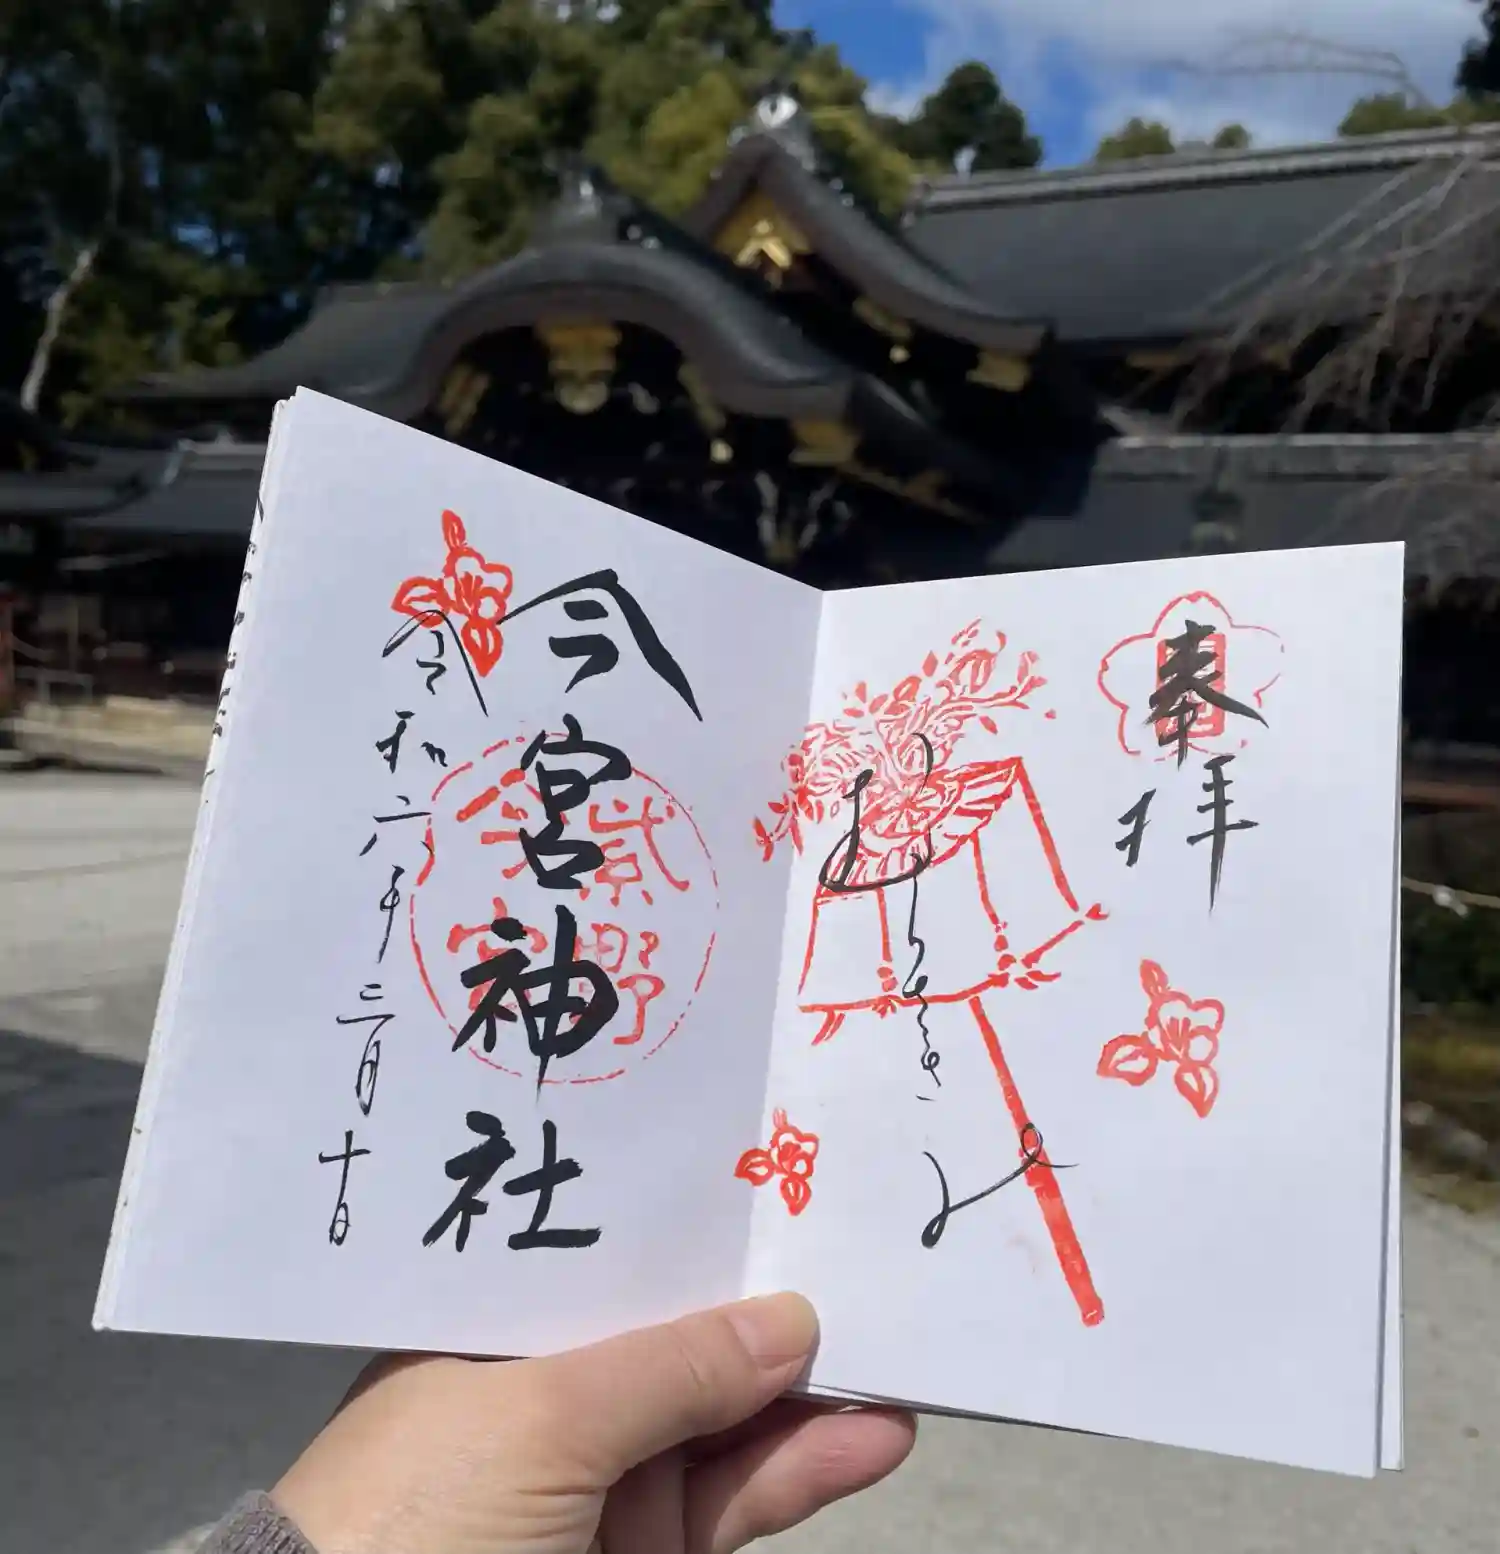 奉拝
むらさきの
今宮神社
紫野
今宮
令和六年三月十日